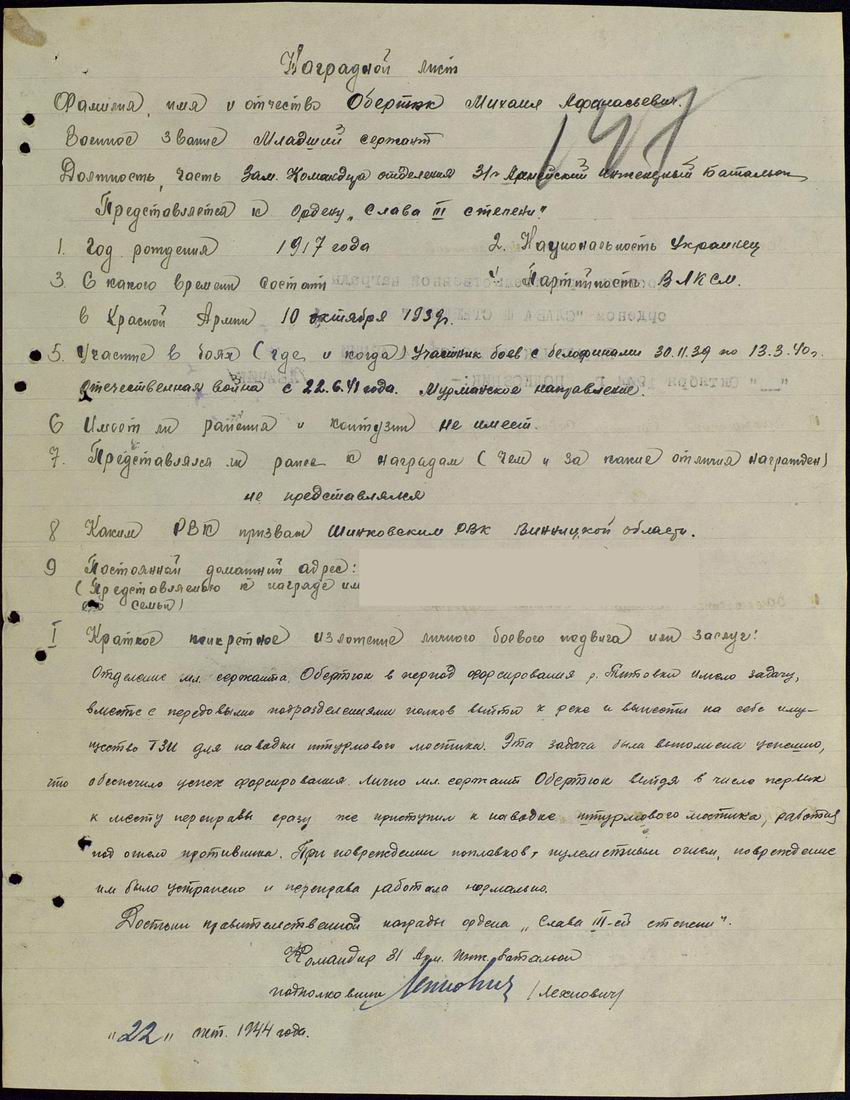 Наградной лист
Фамилия, имя и отчество Обертюк Михаил Афанасьевич.
Военное звание Младший сержант
Должность, часть Зам. Командира отделения 31го Армейский инженерный батальон
Представляется к ордену „Слава III степени"
1. Год рождения 1917 года 2. Национальность Украинец
3. С какого времени состоит 4. Партийность ВЛКСМ.
в Красной Армии 10 октября 1939г.
5. Участие в боях (где и когда) Участник боев с белофинами 30.11.39 по 13.3.40г.
отечественная война с 22.6.41 года. Мурманское направление.
6 Имеет ли ранения и контузии не имеет.
7. Представлялся ли ранее к наградам (Чем и за какие отличия награжден)
не представлялся
8 Каким РВК призван Шинковским РВК Винницкой области.
9 Постоянный домашний адрес:
(Представляемого к награде или
его семьи)
I Краткое конкретное изложение личного боевого подвига или заслуг:
Отделение мл. сержанта Обертюк в период форсирования р. Титовки имело задачу,
вместе с передовыми подразделениями полков выйти к реке и вынести на себе иму-
щество ТЗИ для наводки штурмового мостика. Эта задача была выполнена успешно,
что обеспечило успех форсирования. Лично мл. сержант Обертюк выйдя в число первых
к месту переправы сразу же приступил к наводке штурмового мостика, работая
под огнем противника. При повреждении поплавков, пулеметным огнем, повреждение
им было устранено и переправа работала нормально.
Достоин правительственной награды ордена „Слава III-ей степени".
Командир 31 Арм. Инж. батальон
подполковник /Лехнович/
„22" окт. 1944 года.